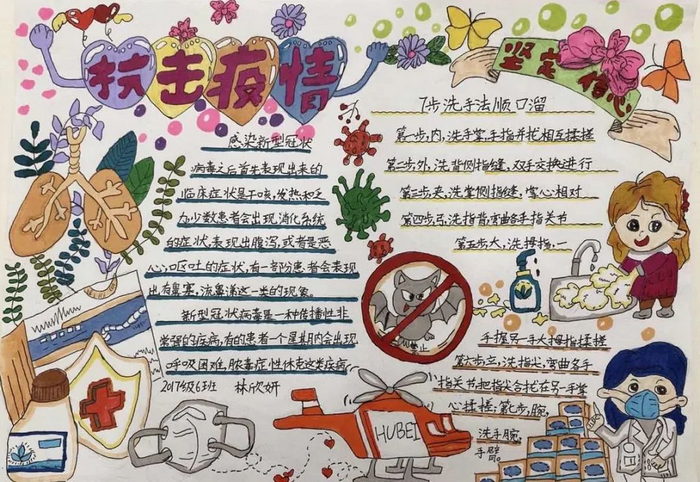 抗击疫情
坚定信心
感染新型冠状
病毒之后首先表现出来的
临床症状是干咳,发热和乏
力少数患者会出现消化系统
的症状,表现出腹泻,或者是恶
心,呕吐的症状,有一部份患者会表现
出有鼻塞,流鼻涕这一类的现象。
新型冠状病毒是一种传播性非
常强的疾病,有的患者一个星期内会出现
呼吸困难,脓毒症性休克这类疾病
2017级6班 林欣妍
7步洗手法顺口溜
第一步,内,洗手掌,手指并拢相互揉搓
第二步,外,洗背侧指缝,双手交换进行
第三步,夹,洗掌侧指缝,掌心相对
第四步,弓,洗指背,弯曲各手指关节
第五步,大,洗拇指,一
手握另一手大拇指揉搓
第六步,立,洗指尖,弯曲多手
指关节把指尖合拢在另一手掌
心揉搓,第七步,腕,
洗手腕。
手臂
HUBEI